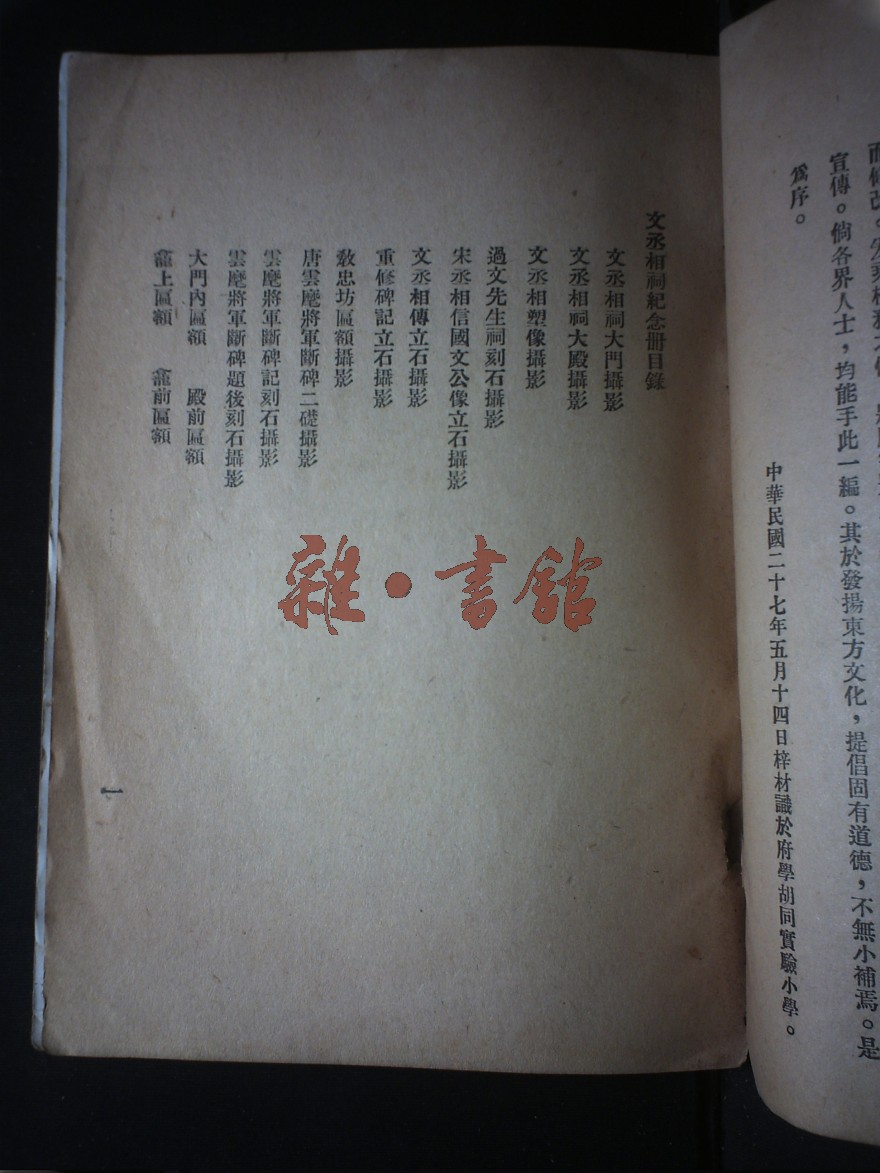 宣傳。倘各界人士，均能手此一編。其於發揚東方文化，提倡固有道德，不無小補焉。是
爲序。
中華民國二十七年五月十四日梓材識於府學胡同實驗小學。
文丞相祠紀念册目錄
文丞相祠大門攝影
文丞相祠大殿攝影
文丞相塑像攝影
過文先生祠刻石攝影
宋丞相信國文公像立石攝影
文丞相傳立石攝影
重修碑記立石攝影
敎忠坊匾額攝影
唐雲麾將軍斷碑二礎攝影
雲麾將軍斷碑記刻石攝影
雲麾將軍斷碑題後刻石攝影
大門內匾額　殿前匾額
龕上匾額　龕前匾額
一
雜·書館